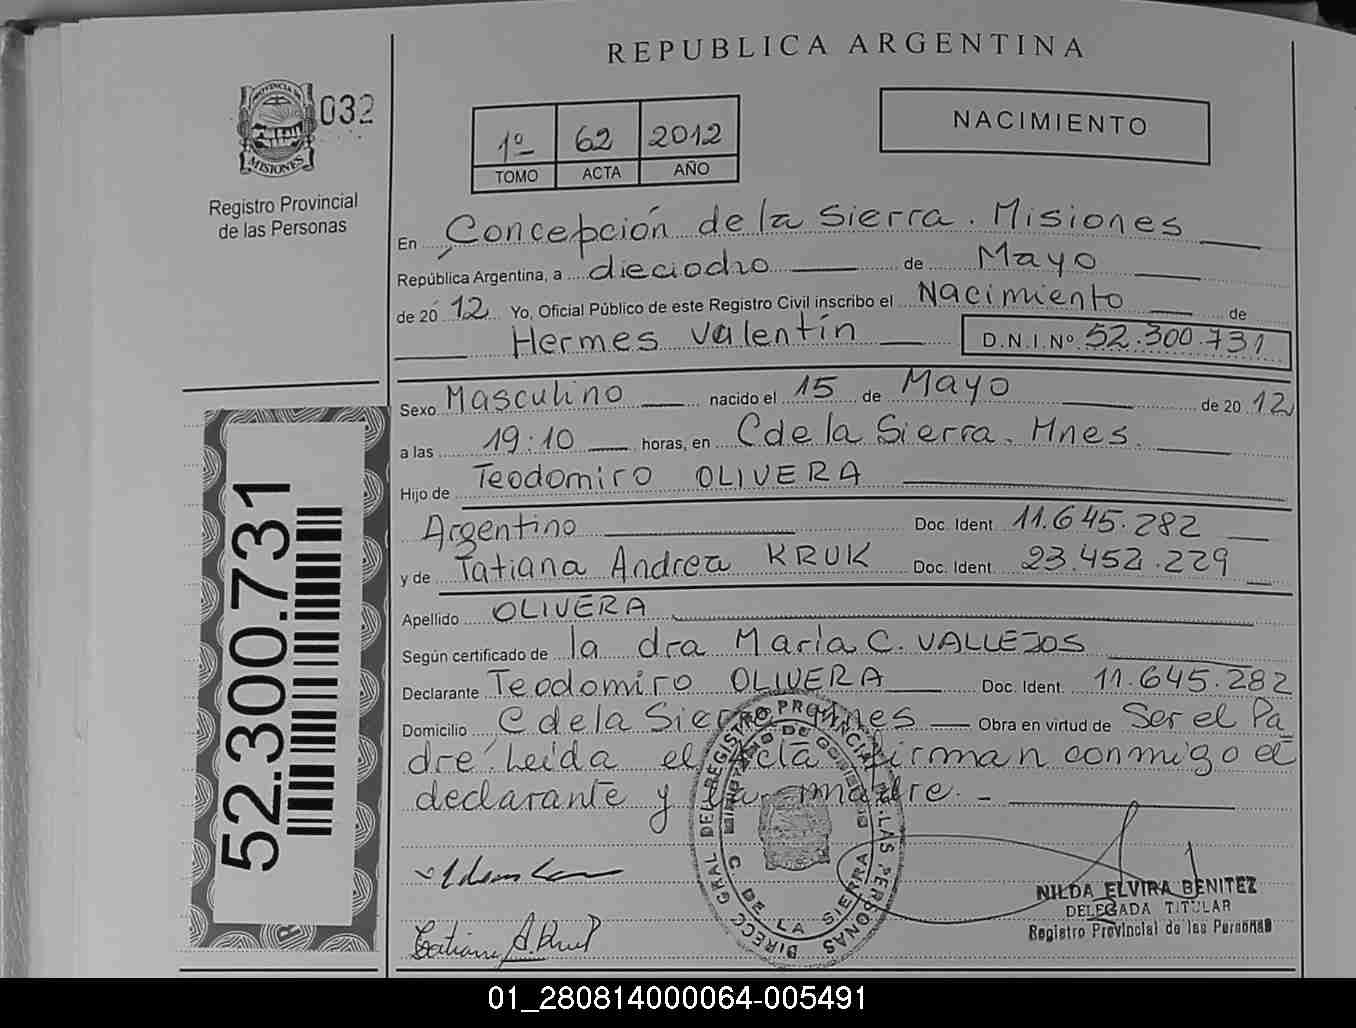 REPUBLICA ARGENTINA
PROVINCIA DE
MISIONES
032
Registro Provincial
de las Personas
1º 62 2012
TOMO ACTA AÑO
NACIMIENTO
En Concepción de la Sierra. Misiones
República Argentina, a dieciocho de Mayo
de 2012 Yo, Oficial Público de este Registro Civil inscribo el Nacimiento de
Hermes Valentín D.N.I.Nº 52.300.731
Sexo Masculino nacido el 15 de Mayo de 2012
a las 19:10 horas, en C de la Sierra. Mnes.
Hijo de Teodomiro OLIVERA
Argentino Doc. Ident. 11.645.282
y de Tatiana Andrea KRUK Doc. Ident. 23.452.229
Apellido OLIVERA
Según certificado de la dra María C. VALLEJOS
Declarante Teodomiro OLIVERA Doc. Ident. 11.645.282
Domicilio C de la Sierra Mnes Obra en virtud de Ser el Pa
dre. Leída el Acta firman conmigo el
declarante y la madre. -
52.300.731
DIRECC GRAL DEL REGISTRO PROVINCIAL DE LAS PERSONAS
MINISTERIO DE GOBIERNO
C DE LA SIERRA
Tatiana A. Kruk
NILDA ELVIRA BENITEZ
DELEGADA TITULAR
Registro Provincial de las Personas
01_280814000064-005491